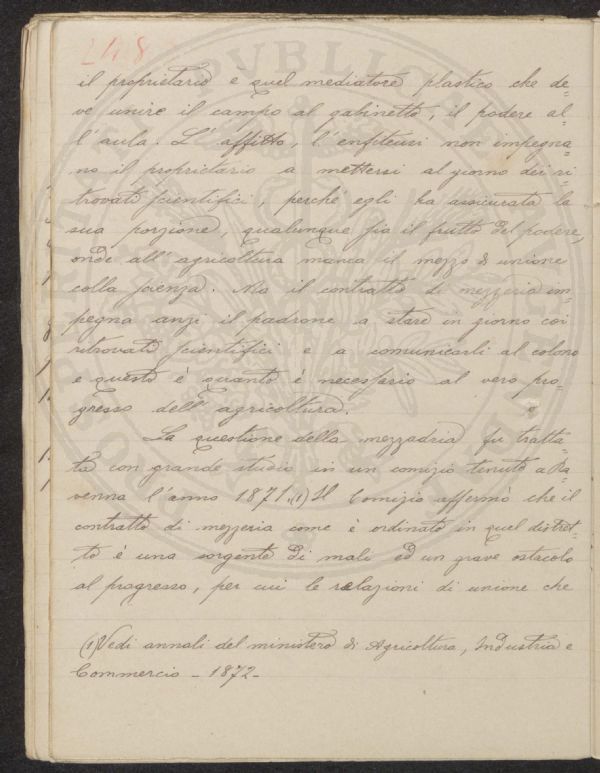 248
il proprietario è quel mediatore plastico che de=
ve unire il campo al gabinetto, il podere al=
l'aula. L'affitto, l'enfiteusi non impegna=
no il proprietario a mettersi al giorno dei ri=
trovati scientifici, perchè egli ha assicurata la
sua porzione, qualunque sia il frutto del podere,
onde all'agricoltura manca il mezzo di unione
colla scienza. Ma il contratto di mezzeria im=
pegna anzi il padrone a stare in giorno coi
ritrovati scientifici e a comunicarli al colono
e questo è quanto è necessario al vero pro=
gresso dell'agricoltura.
La questione della mezzadria fu tratta=
ta con grande studio in un comizio tenuto a Ra
venna l'anno 1871.(1) Il Comizio affermò che il
contratto di mezzeria come è ordinato in quel distret=
to è una sorgente di mali ed un grave ostacolo
al progresso, per cui le relazioni di unione che
(1) Vedi annali del ministero di Agricoltura, Industria e
Commercio - 1872 -